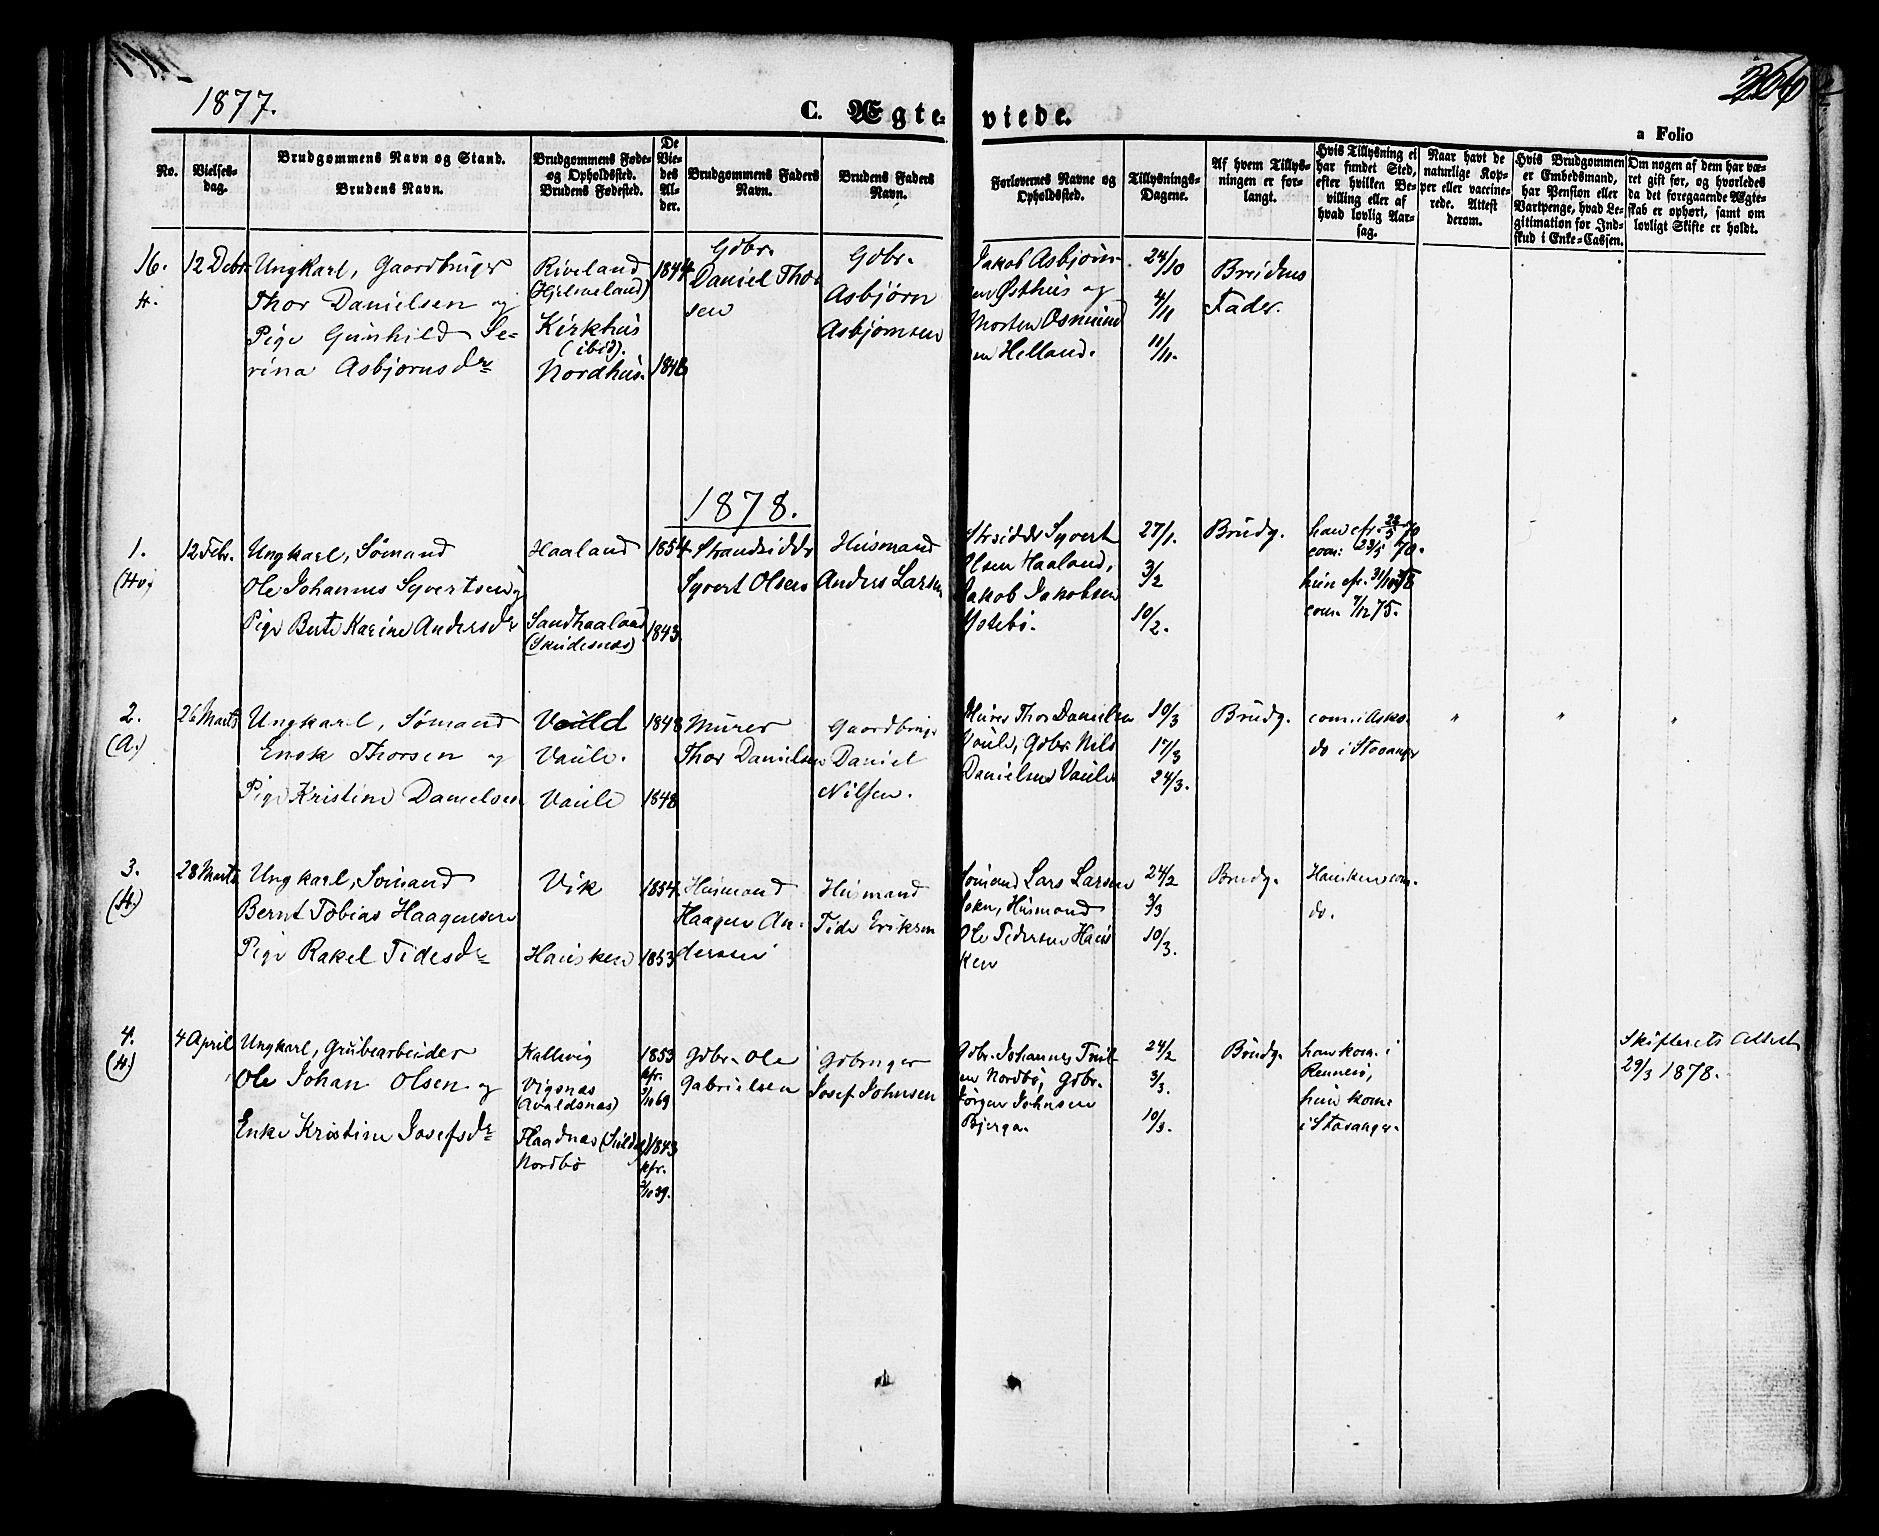 1877.
C. Ægte-
viede.
266
a Folio
No.
Vielses-
dag.
Brudgommens Navn og Stand.
Brudens Navn.
Brudgommens Føde-
og Opholdssted.
Brudens Fødested.
De
Vie-
des
Al-
der.
Brudgommens Faders
Navn.
Brudens Faders
Navn.
Forlovernes Navne og
Opholdssted.
Tillysnings-
Dagene.
Af hvem Tillys-
ningen er for-
langt.
Hvis Tillysning ei
har fundet Sted,
efter hvilken Be-
villing eller af
hvad lovlig Aar-
sag.
Naar havt de
naturlige Kop-
per eller vaccine-
rede. Attest
derom.
Hvis Brudgommen
er Embedsmand,
har Pension eller
Vartpenge, hvad Le-
gitimation for Ind-
skud i Enke-Cassen.
Om nogen af dem har væ-
ret gift før, og hvorledes
da det foregaaende Ægte-
skab er ophørt, samt om
lovligt Skifte er holdt.
16.
H.
12 Debr.
Ungkarl, Gaardbruger
Thor Danielsen og
Pige Gunhild Se-
rina Asbjørnsdr
Riveland
(Hjelmeland)
Kirkhus
(ibid).
Nordhus.
1844
1848
Gdbr.
Daniel Thor
sen
Gdbr.
Asbjørn
Asbjørnsen
Jakob Asbjørn-
sen Østhus og
Morten Osmund
sen Helland.
24/10
4/11
11/11.
Brudens
Fader.
1878.
1.
(Hv)
12 Febr.
Ungkarl, Sømand
Ole Johannes Syvertsen og
Pige Berte Karine Andersdr
Haaland
Sandhaaland
(Skudesnæs)
1854
1843
Strandsidder
Syvert Olsen
Husmand
Anders Larsen
Strsidder Syvert
Olsen Haaland,
Jakob Jakobsen
27/1.
3/2
10/2.
Brudg.
com. 7/12 75.
2.
(A.)
26 Marts
Ungkarl, Sømand
Enok Thorsen og
Pige Kristine Danielsen
Vaule.
Vaule
1848
1848
Murer
Thor Danielsen
Gaardbruger
Daniel
Nilsen.
Murer Thor Danielsen
Vaule, Gdbr. Nils
Danielsen Vaule
10/3
17/3
24/3.
Brudg.
com. i Asko.
do i Stavanger
"
"
"
3.
(H.)
28 Marts
Ungkarl, Sømand
Bernt Tobias Haagensen
Pige Rakel Tidesdr
Vik
Hausken
1854.
1853
Husmand
Haagen An-
dersen
Husmand
Tide Eriksen
Sømand Lars Larsen
Husmand
Ole Pedersen Haus
ken
24/2
3/3
10/3.
Brudg.
Hausken com.
do.
4.
(H)
4 April
Ungkarl, Grubearbeider
Ole Johan Olsen og
Enke Kristine Josefsdr
Kallevig
Vigsnæs
(Avaldsnæs)
Nordbø
1853
kfr.
1843
kfr.
Gdbr. Ole
Gabrielsen
Gdbruger
Josef Johnsen
Gdbr. Johannes
Nordbø, Gdbr.
Jørgen Johnsen
Bjerga.
24/2
3/3.
10/3.
Brudg.
han kom. i
Rennesø,
hun kom.
i Stavanger.
Skifterets Attest
29/3 1878.